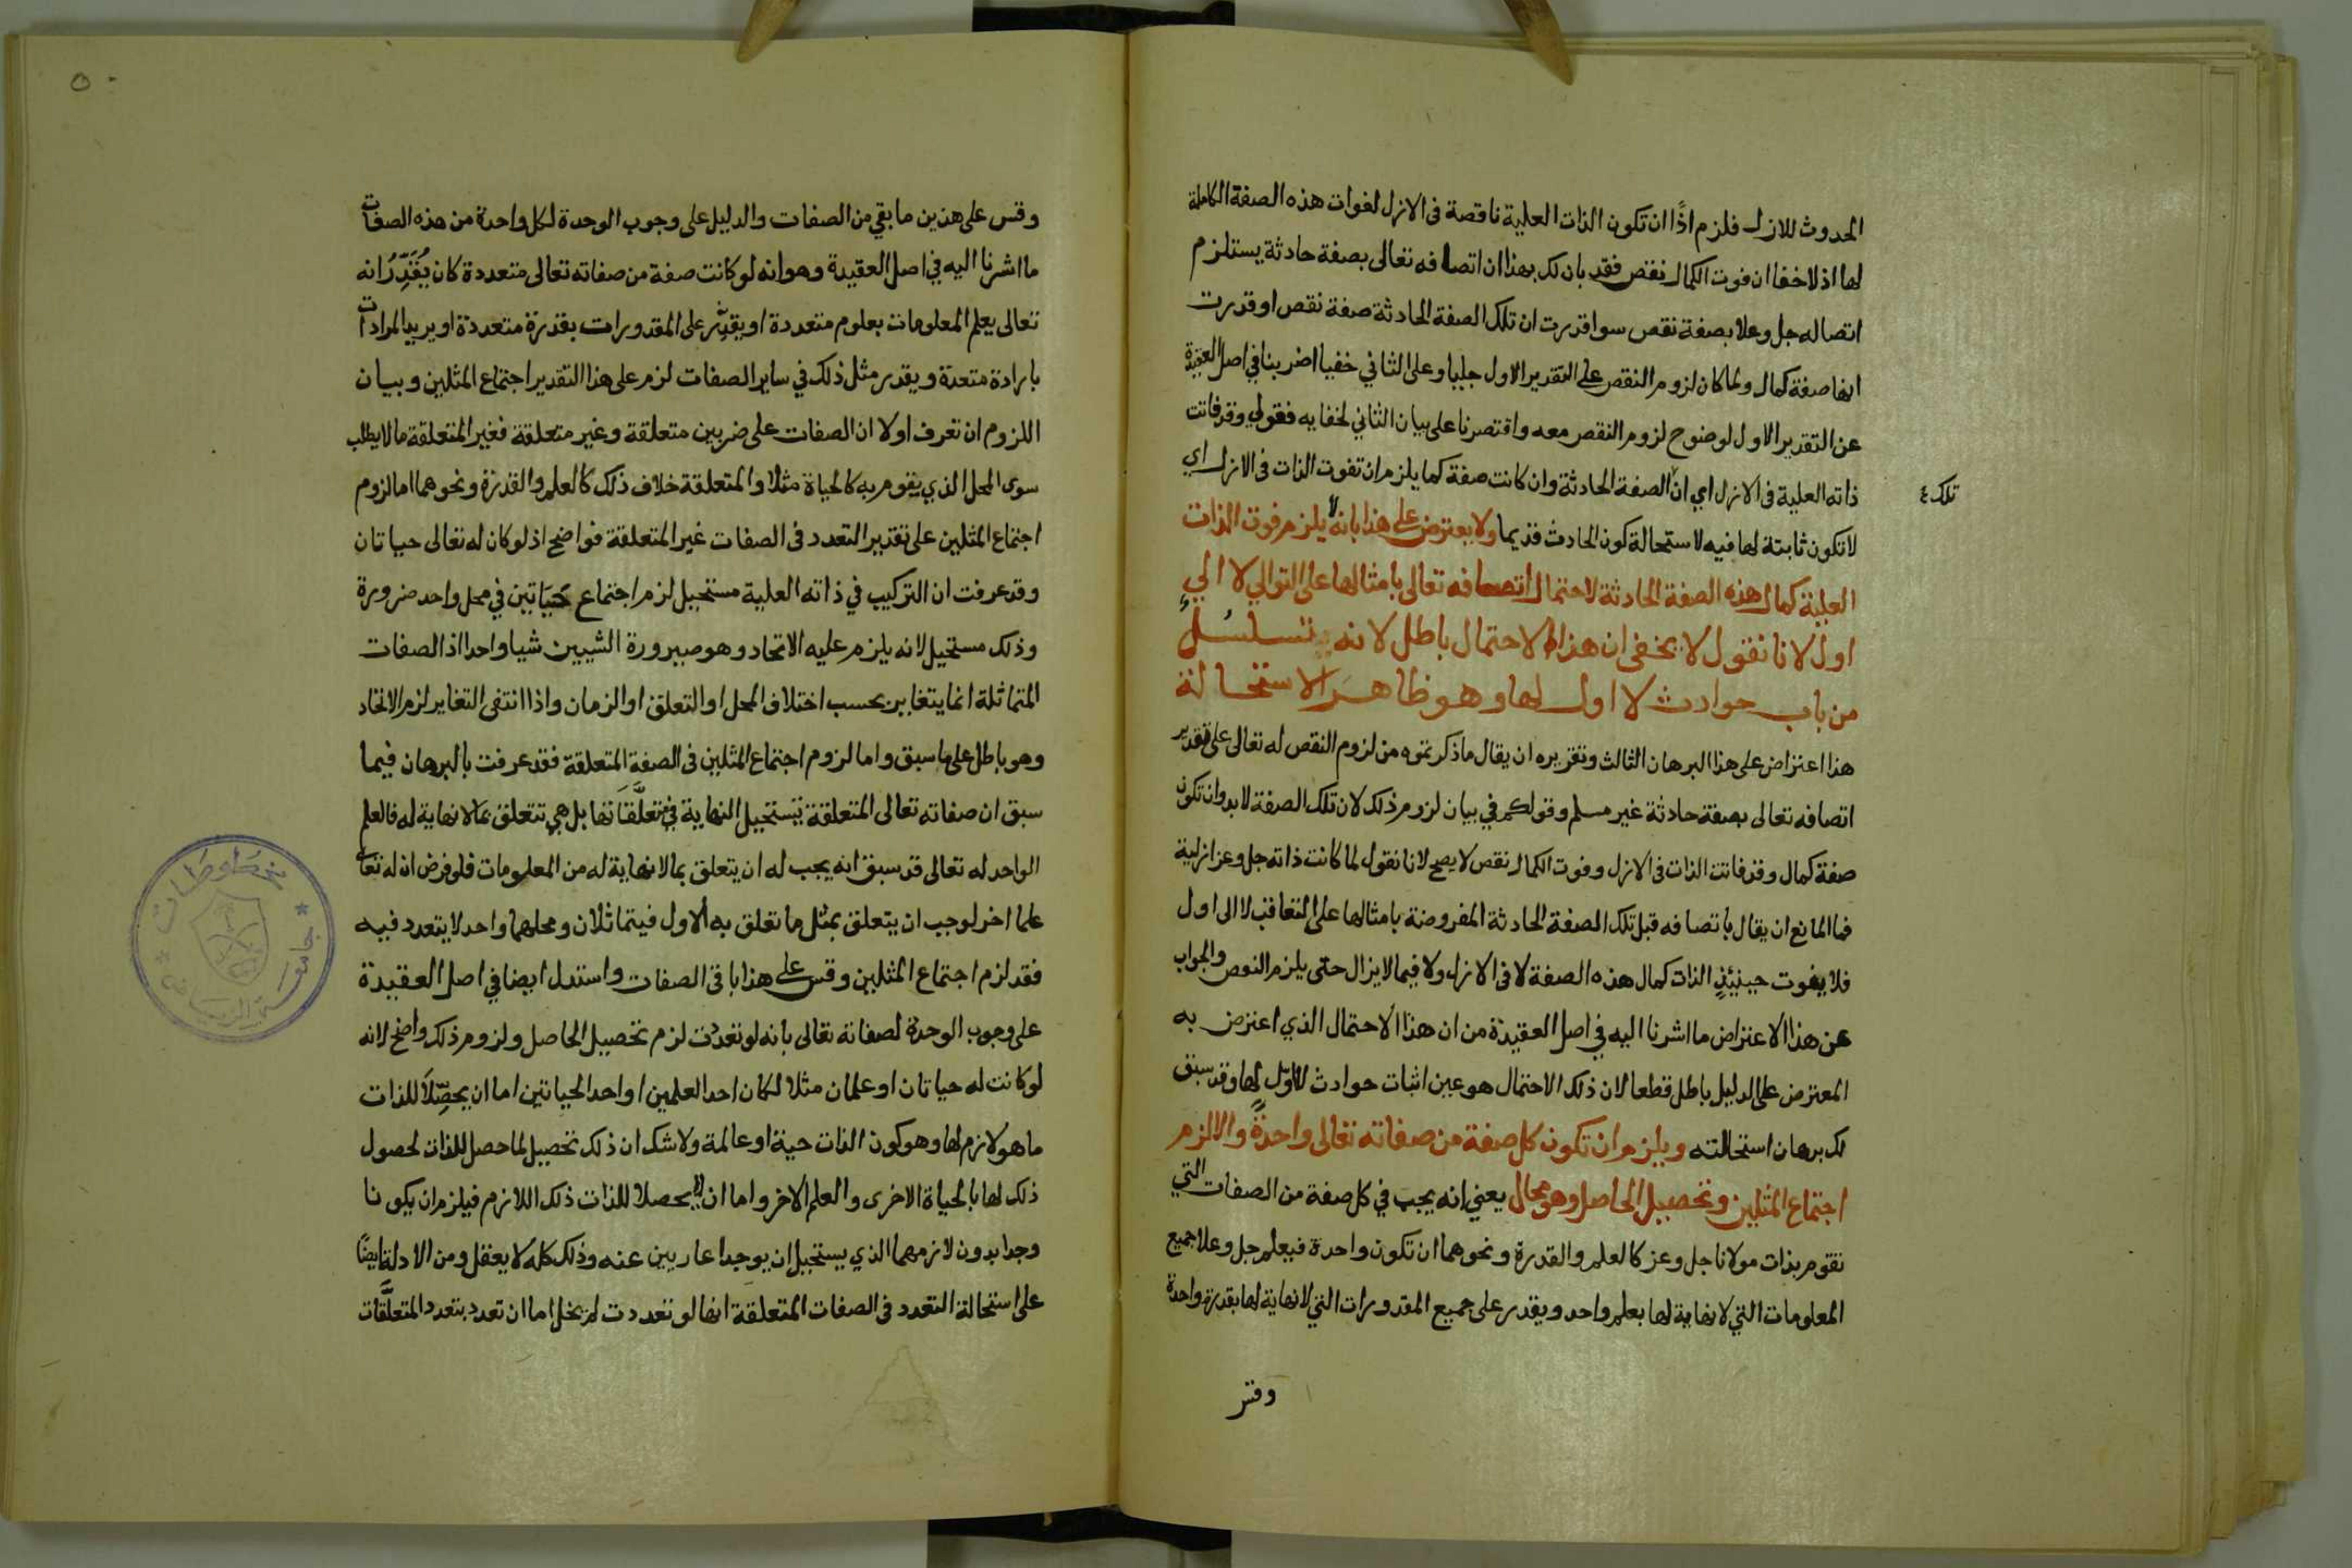 الحدوث للازل فلزم اذًا ان تكون الذات العلية ناقصة فى الازل لفوات هذه الصفة الكاملة
لها اذ لاخفا ان فوت الكمال نقص فقد بان لك بهذا ان اتصافه تعالى بصفة حادثة يستلزم
اتصاله جل وعلا بصفة نقص سوا قدرت ان تلك الصفة الحادثة صفة نقص او قدرت
انها صفة كمال ولما كان لزوم النقص على التقدير الاول جليا وعلى الثاني خفيا اضربنا في اصل العقيدة
عن التقدير الاول لوضوح لزوم النقص معه واقتصرنا على بيان الثاني لخفايه فقولي وقد فاتت
ذاته العلية فى الازل اي ان الصفة الحادثة وان كانت صفة كما يلزم ان تفوت الذات فى الازل اي
تلك
لا تكون ثابتة لها فيه لاستحالة كون الحادث قديما ولا يعترض على هذا بانه لا يلزم فوت الذات
العلية كمال هذه الصفة الحادثة لاحتمال اتصافه تعالى بامثالها على التوالي لا الي
اول لانا نقول لا يخفى ان هذا الاحتمال باطل لانه تسلسل
من باب حوادث لا اول لها وهو ظاهر الاستحالة
هذا اعتراض على هذا البرهان الثالث وتقريره ان يقال ما ذكرتموه من لزوم النقص له تعالى على تقدير
اتصافه تعالى بصفة حادثة غير مسلم وقولكم في بيان لزوم ذلك لان تلك الصفة لابد وان تكون
صفة كمال وقد فاتت الذات فى الازل وفوت الكمال نقص لا يصح لانا نقول لما كانت ذاته جل وعز ازلية
فما المانع ان يقال باتصافه قبل تلك الصفة الحادثة المفروضة بامثالها على التعاقب لا الى اول
فلا يفوت حينيئذٍ الذات كمال هذه الصفة لا فى الازل ولا فيما لا يزال حتى يلزم النقص والجواب
عن هذا الاعتراض ما اشرنا اليه في اصل العقيدة من ان هذا الاحتمال الذي اعترض به
المعترض على الدليل باطل قطعا لان ذلك الاحتمال هو عين اثبات حوادث لا اول لها وقد سبق
لك برهان استحالته ويلزم ان تكون كل صفة من صفاته تعالى واحدةً والا لزم
اجتماع المثلين وتحصيل الحاصل وهو محال يعني انه يجب في كل صفة من الصفات التي
تقوم بذات مولانا جل وعز كالعلم والقدرة ونحوهما ان تكون واحدة فيعلم جل وعلا جميع
المعلومات التي لا نهاية لها بعلم واحد ويقدر على جميع المقدورات التي لا نهاية لها بقدرة واحدة
وقس
وقس على هذين ما بقي من الصفات والدليل على وجوب الوحدة لكل واحدة من هذه الصفات
ما اشرنا اليه في اصل العقيدة وهو انه لو كانت صفة من صفاته تعالى متعددة كان يُقَدِّرُ انه
تعالى يعلم المعلومات بعلوم متعددة او يقدر على المقدورات بقدرة متعددة او يريد المرادات
بارادة متعدة ويقدر مثل ذلك في ساير الصفات لزم على هذا التقدير اجتماع المثلين وبيان
اللزوم ان تعرف اولا ان الصفات على ضربين متعلقة وغير متعلقة فغير المتعلقة ما لا يطلب
سوى المحل الذي يقوم به كالحياة مثلا والمتعلقة خلاف ذلك كالعلم والقدرة ونحوهما اما لزوم
اجتماع المثلين على تقدير التعدد فى الصفات غير المتعلقة فواضح اذ لو كان له تعالى حياتان
وقد عرفت ان التركيب في ذاته العلية مستحيل لزم اجتماع حَيَاتين في محل واحد ضرورة
وذلك مستحيل لانه يلزم عليه الاتحاد وهو صيرورة الشيين شيا واحدا اذ الصفات
المتماثلة انما يتغاير بحسب اختلاف المحل او التعلق او الزمان واذا انتفى التغاير لزم الاتحاد
وهو باطل على ما سبق واما لزوم اجتماع المثلين فى الصفة المتعلقة فقد عرفت بالبرهان فيما
سبق ان صفاته تعالى المتعلقة تستحيل النهاية في تعلَّقَاتها بل هي تتعلق بما لا نهاية له فالعلم
الواحد له تعالى قد سبق انه يجب له ان يتعلق بما لا نهاية له من المعلومات فلو فرض ان له تعا
علما اخر لوجب ان يتعلق بمثل ما تعلق به الاول فيتماثلان ومحلهما واحد لا يتعدد فيه
فقد لزم اجتماع المثلين وقس على هذا باقى الصفات واستدل ايضا في اصل العقيدة
على وجوب الوحدة لصفاته تعالى بانه لو تعددت لزم تحصيل الحاصل ولزوم ذلك واضح لانه
لو كانت له حياتان او علمان مثلا لكان احد العلمين او احد الحياتين اما ان يحصِّلَا للذات
ما هو لازم لها وهو كون الذات حية او عالمة ولا شك ان ذلك تحصيل لما حصل للذات لحصول
ذلك لها بالحياة الاخرى والعلم الاخر واما ان لا يحصلا للذات ذلك اللازم فيلزم ان يكونا
وجدا بدون لازمهما الذي يستحيل ان يوجدا عاريين عنه وذلك كله لا يعقل ومن الادلة ايضًا
على استحالة التعدد فى الصفات المتعلقة انها لو تعددت لم يخل اما ان تعدد بتعدد المتعلَّقات
جامعة الرياض
مخطوطات